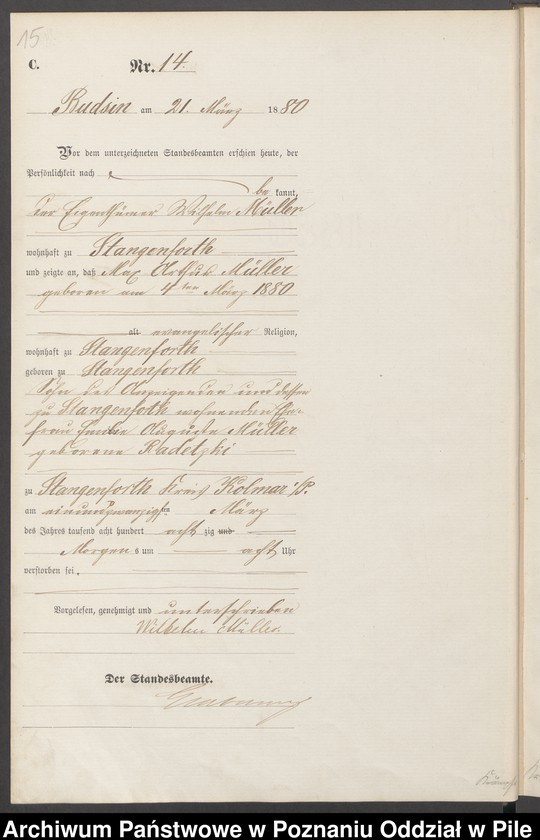 15
C. Nr. 14.
Budsin am 21. März 1880
Vor dem unterzeichneten Standesbeamten erschien heute, der
Persönlichkeit nach
be kannt,
der Eigenthümer Wilhelm Müller
wohnhaft zu Stangenforth
und zeigte an, daß Max Arthur Müller
geboren am 4ten März 1880
alt evangelischer Religion,
wohnhaft zu Stangenforth
geboren zu Stangenforth
Sohn des Anzeigenden und dessen
zu Stangenforth wohnenden Ehe-
frau Auguste Müller
geborene Radetzki
zu Stangenforth Kreis Kolmar i/P.
am einundzwanzigsten März
des Jahres tausend acht hundert acht zig und
Morgens um acht Uhr
verstorben sei.
Vorgelesen, genehmigt und unterschrieben
Wilhelm Müller.
Der Standesbeamte.
Archiwum Państwowe w Poznaniu Oddział w Pile